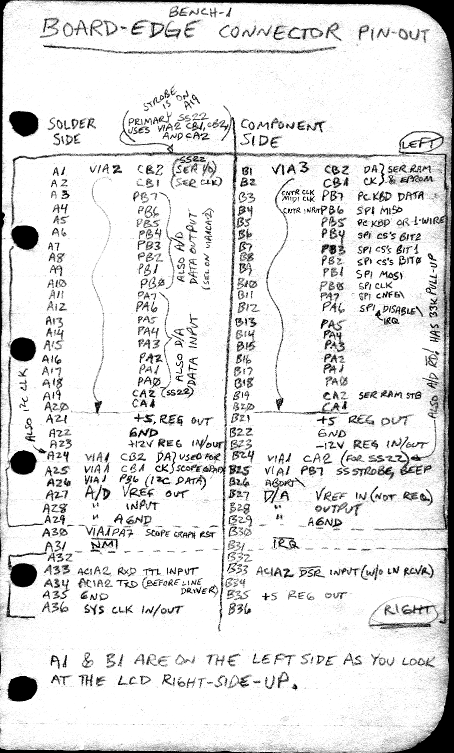 BENCH-1
BOARD-EDGE CONNECTOR PIN-OUT
STROBE IS ON A19
(PRIMARY SS22 USES VIA2 CB1, CB2, AND CA2)
SOLDER SIDE
COMPONENT SIDE
LEFT
A1 VIA2 CB2 (SER I/O) SS22
A2 CB1 (SER CLK)
A3 PB7
A4 PB6
A5 PB5
A6 PB4
A7 PB3
A8 PB2
A9 PB1
A10 PB0
A11 PA7
A12 PA6
A13 PA5
A14 PA4
A15 PA3
A16 PA2
A17 PA1
A18 PA0
A19 CA2 (SS22)
A20 CA1
ALSO A/D DATA OUTPUT
(SEL ON VIA1CA2)
ALSO D/A DATA INPUT
A21 +5V REG OUT
A22 GND
A23 +12V REG IN/OUT
A24 VIA1 CB2 DA } USED FOR
A25 VIA1 CB1 CK } SCOPE GRAPH
A26 VIA1 PB6 (I2C DATA)
A27 A/D VREF OUT
A28 " INPUT
A29 " AGND
A30 VIA1PA7 SCOPE GRAPH RST
A31 NMI
A32
A33 ACIA2 RXD TTL INPUT
A34 ACIA2 TXD (BEFORE LINE DRIVER)
A35 GND
A36 SYS CLK IN/OUT
ALSO I2C CLK
B1 VIA3 CB2 DA } SER RAM
B2 CB1 CK } & EEPROM
B3 CNTR CLK MIDI CLK PB7 PC KBD DATA
B4 CNTR INPUT PB6 SPI MISO
B5 PB5 PC KBD OR 1-WIRE
B6 PB4 SPI CS'S BIT2
B7 PB3 SPI CS'S BIT1
B8 PB2 SPI CS'S BIT0
B9 PB1 SPI MOSI
B10 PB0 SPI CLK
B11 PA7 SPI CNFG1
B12 PA6 SPI DISABLE IRQ
B13 PA5
B14 PA4
B15 PA3
B16 PA2
B17 PA1
B18 PA0
B19 CA2 SER RAM STB
B20 CA1
B21 +5 REG OUT
B22 GND
B23 -12V REG IN/OUT
B24 VIA1 CA2 (FOR SS22)
B25 VIA1 PB7 SS STROBE, BEEP
B26 ABORT
B27 D/A VREF IN (NOT REQ)
B28 " OUTPUT
B29 " AGND
B30
B31 IRQ
B32
B33 ACIA2 DSR INPUT (W/O LN RCVR)
B34
B35 +5 REG OUT
B36
ALSO A/D RD, HAS 33K PULL-UP
RIGHT
A1 & B1 ARE ON THE LEFT SIDE AS YOU LOOK
AT THE LCD RIGHT-SIDE-UP.